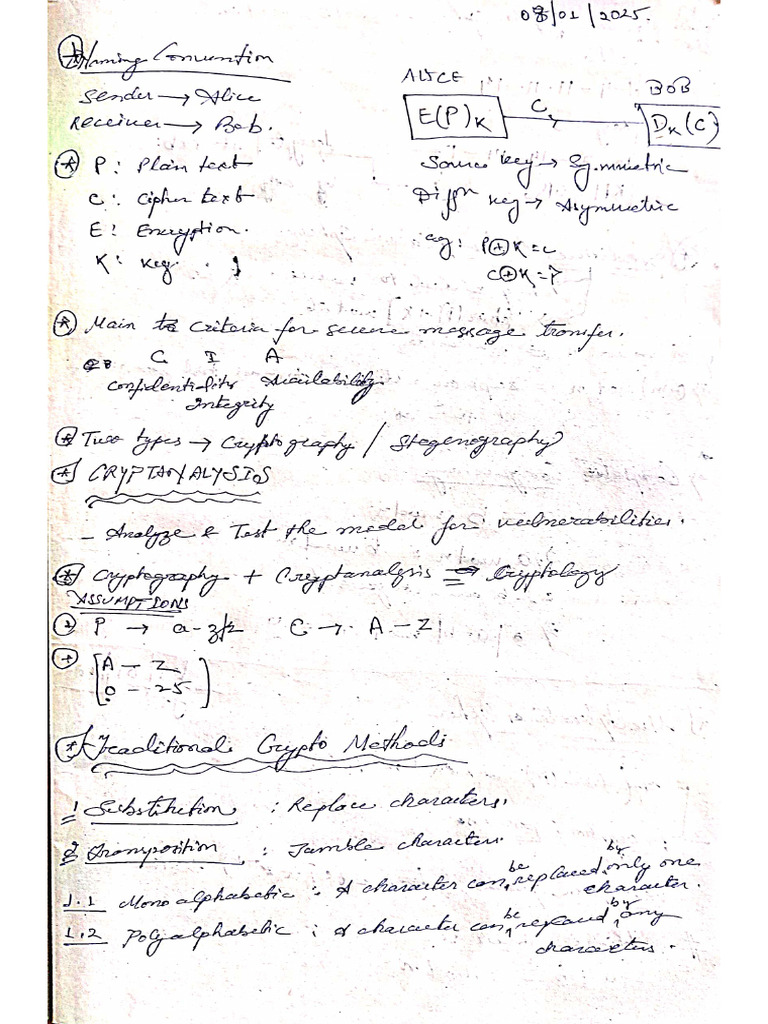 08/01/2025.
Naming Convention
Sender → Alice
Receiver → Bob.
ALICE
E(P)K
C
BOB
DK(C)
P: Plain text
C: Cipher text
E: Encryption.
K: Key.
Key → Symmetric
Diffn Key → Asymmetric
eg: P⊕K=C
C⊕K=P
Main criteria for secure message transfer.
C I A
Confidentiality Availability
Integrity
Two types → Cryptography / Stegenography
CRYPTANALYSIS
- Analyze & Test the model for vulnerabilities.
Cryptography + Cryptanalysis ⇒ Cryptology
ASSUMPTIONS
P → a-z C → A-Z
[A - Z
0 - 25]
Traditional Crypto Methods
1 Substitution : Replace characters.
2 Transposition : Jumble characters.
1.1 Mono alphabetic : A character can be replaced by only one
character.
1.2 Poly alphabetic : A character can be replaced by any
characters.